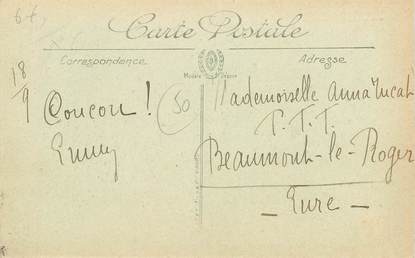 64,
Carte Postale
Correspondance
Adresse
Modèle Déposé
18
9
Coucou !
50
Mademoiselle Anna
P.T.T.
Beaumont-le-Roger
- Eure -